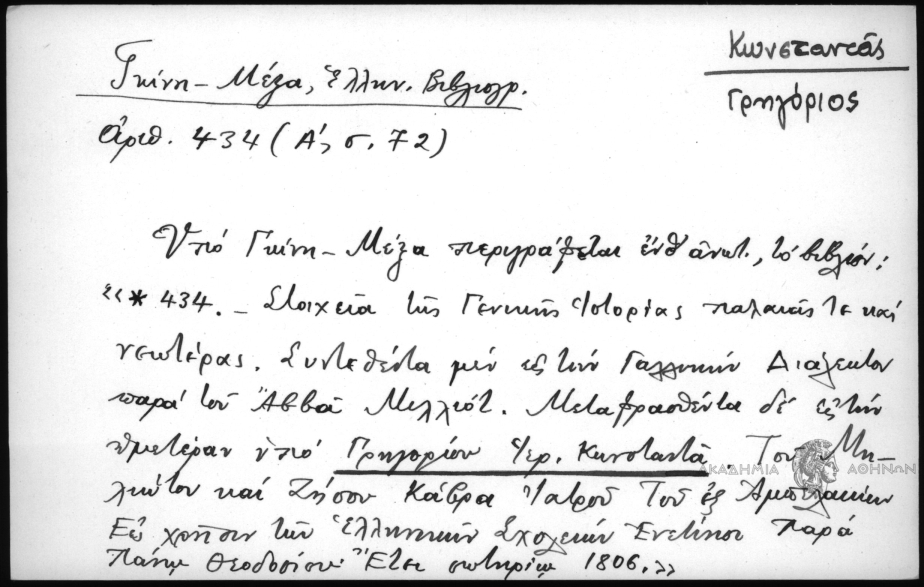 Κωνσταντᾶς
Γρηγόριος
Γκίνη - Μέξα, Ἑλλην. Βιβλιογρ.
ἀριθ. 434 (Α΄, σ. 72)
Ὑπό Γκίνη - Μέξα περιγράφεται ἐνθ' ἀνωτ., τό βιβλίον:
«* 434. - Στοιχεῖα τῆς Γενικῆς Ἱστορίας παλαιᾶς τε καί
νεωτέρας. Συντεθέντα μέν εἰς τήν Γαλλικήν Διάλεκτον
παρά τοῦ Ἀββᾶ Μιλλιότ. Μεταφρασθέντα δέ εἰς τήν
ἡμετέραν ὑπό Γρηγορίου Ἱερ. Κωνσταντᾶ. Τοῦ Μη-
λιώτου καί Ζήσου Κάβρα Ἰατροῦ Τοῦ ἐξ Ἀμπελακίων
Εἰς χρῆσιν τῶν Ἑλληνικῶν Σχολείων Ἐνετίησι Παρά
Πάνῳ Θεοδοσίου Ἔτει σωτηρίῳ 1806.»
ΑΚΑΔΗΜΙΑ ΑΘΗΝΩΝ